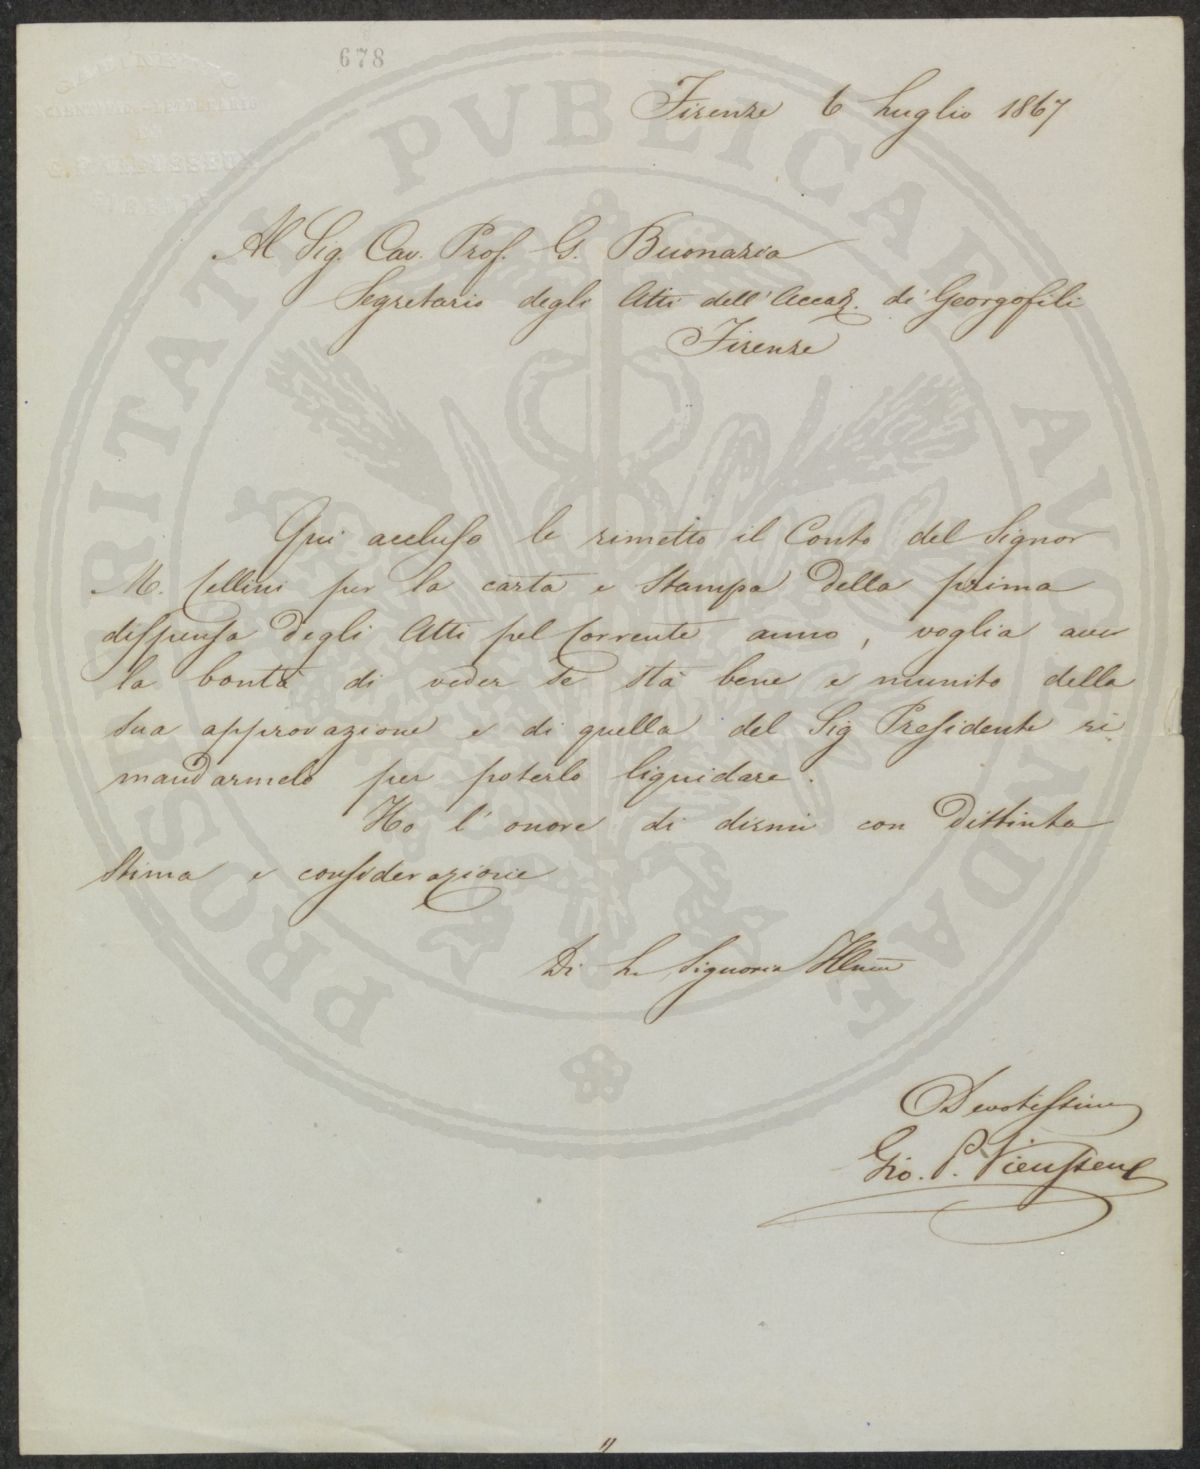 678
Firenze 6 Luglio 1867
Al Sig. Cav. Prof. G. Buonarva
Segretario degli Atti dell'Accad. di Georgofili
Firenze
Qui accluso le rimetto il Conto del Signor
M. Cellini per la carta e Stampa della prima
dispensa degli Atti pel corrente anno, voglia aver
la bontà di veder se stà bene e munito della
sua approvazione e di quella del Sig Presidente ri
mandarmelo per poterlo liquidare.
Ho l'onore di dirmi con distinta
Stima e considerazione
Di L. Signoria Illma
Devotissimo
Gio. P. Vieusseux
PROSPERITATI PVBLICAE AVGENDAE